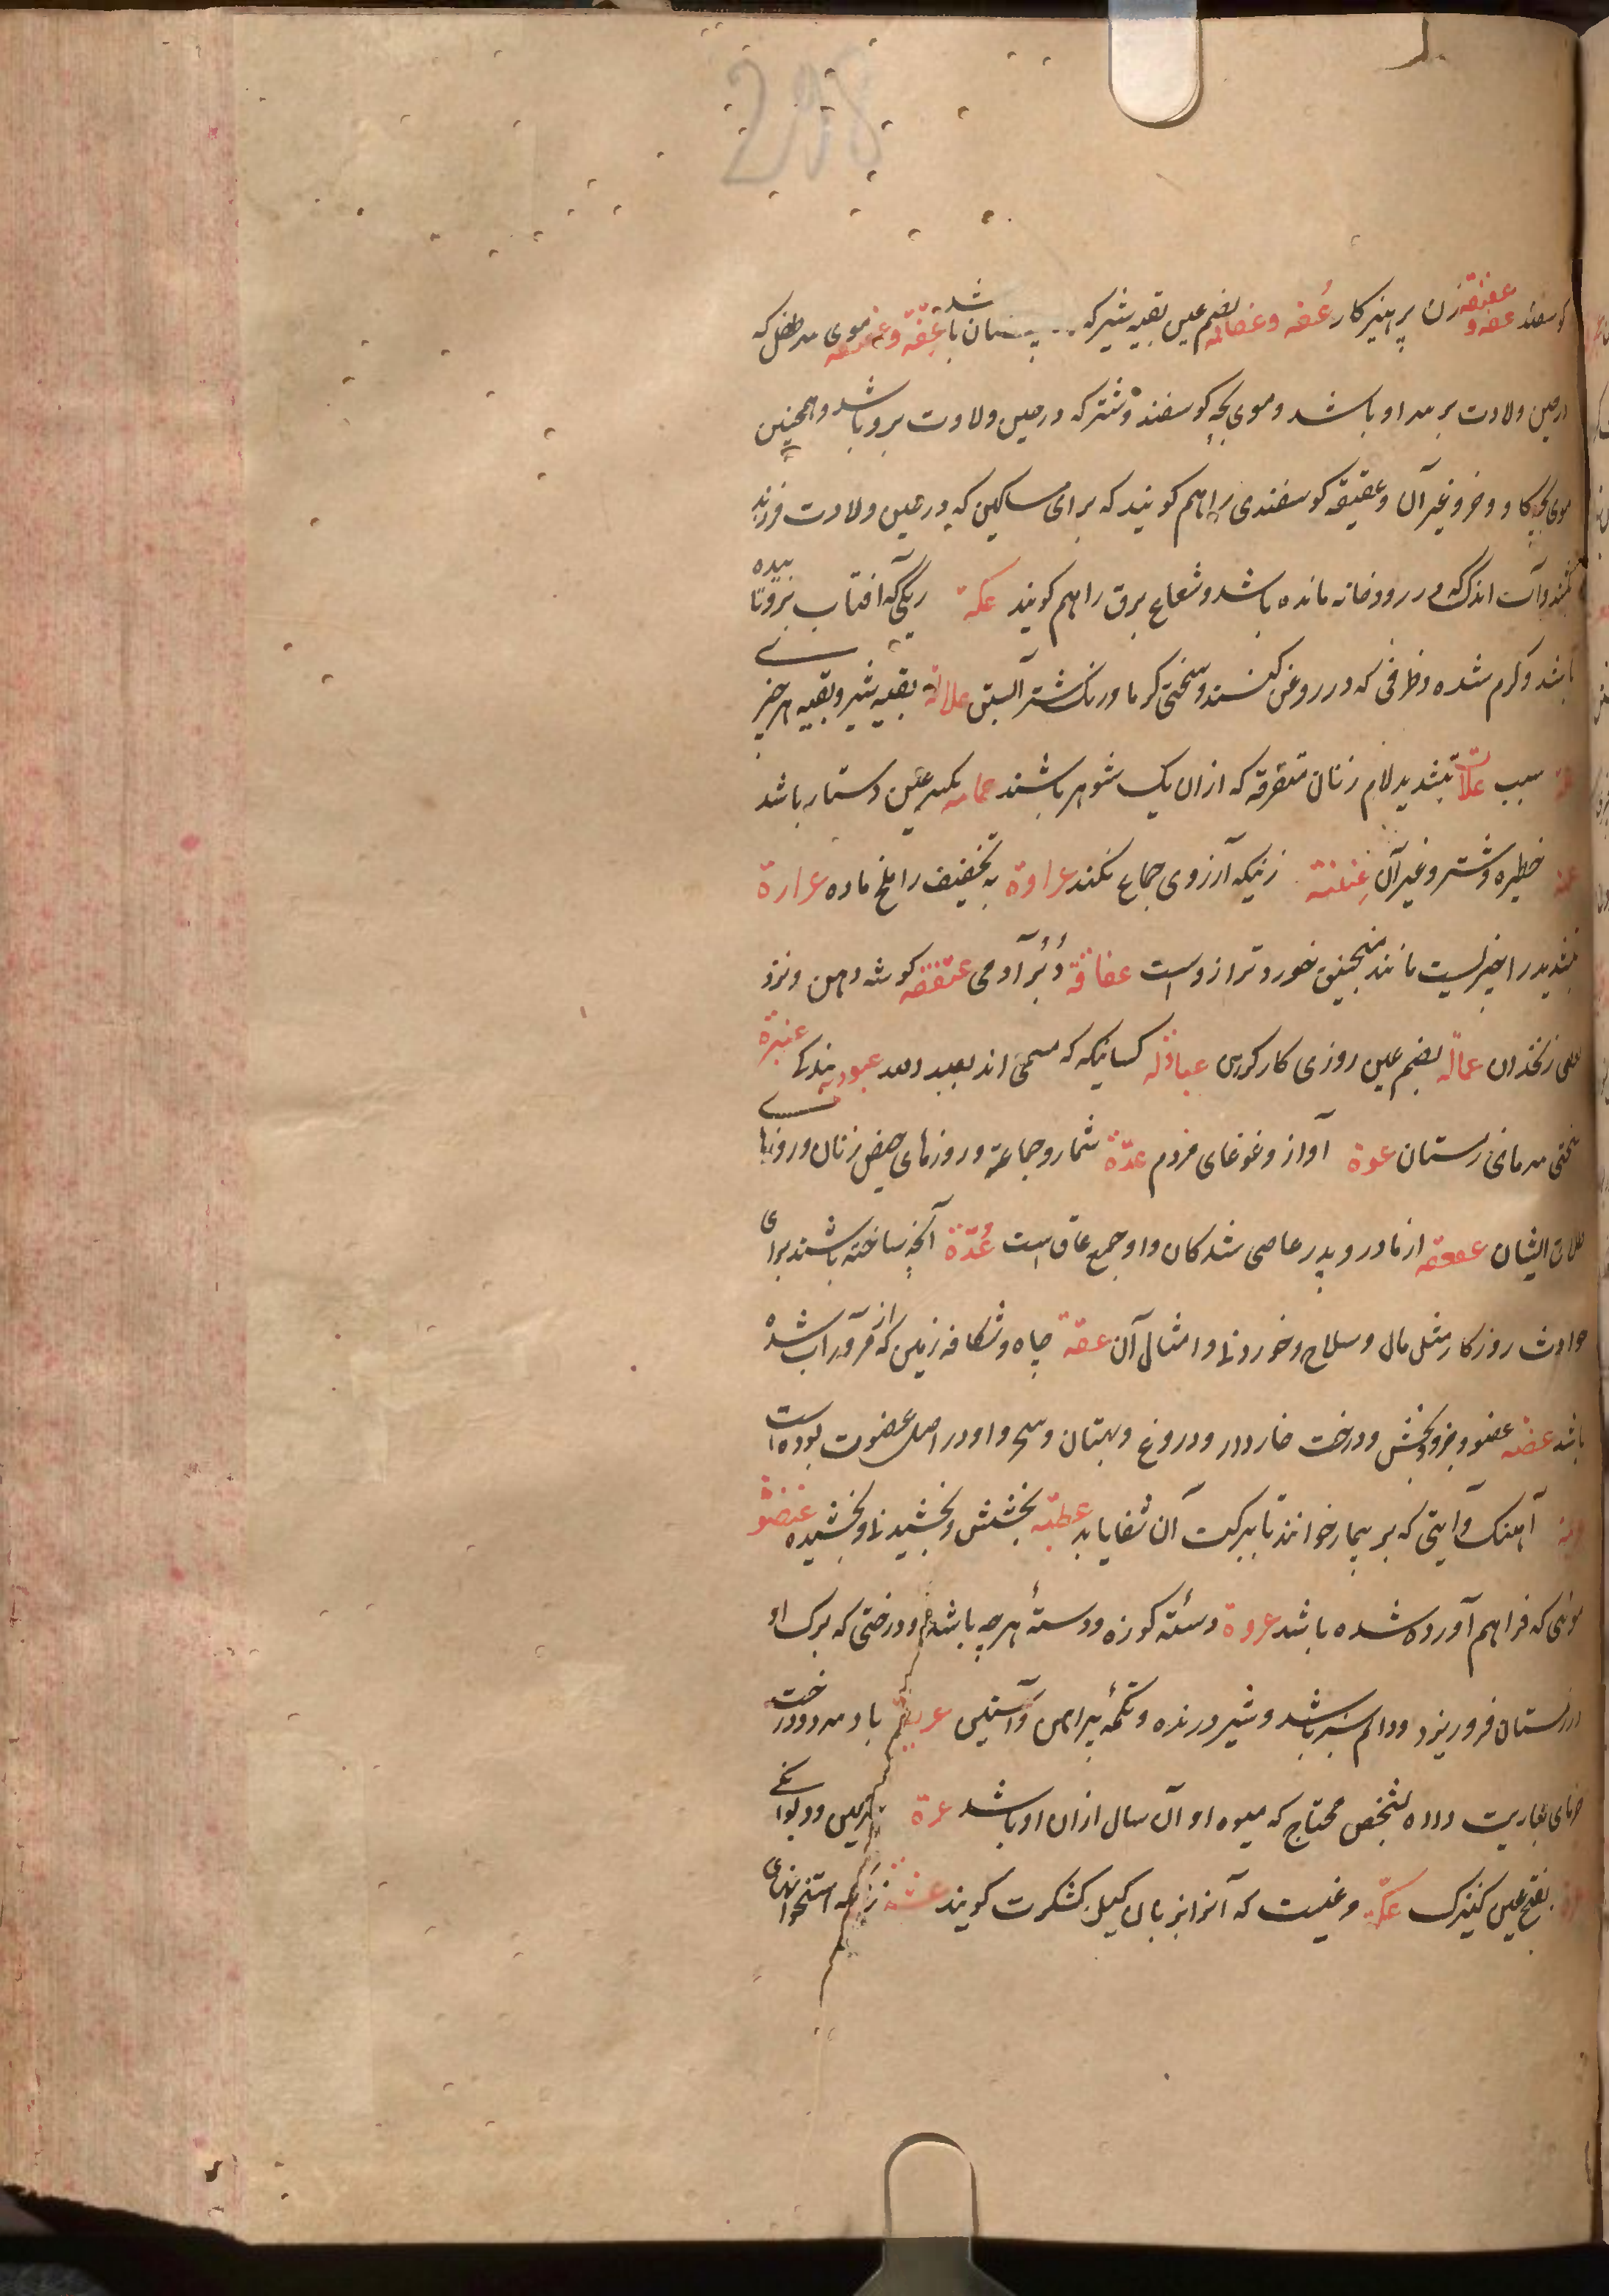 218
کوسفند عفه و عفیفه زن پرهیزکار عُفه و عفافه بضم عین بقیه شیر که پستان باشد عِقّه و عقیقه موی سر طفل که
در حین ولادت بر سر او باشد و موی بچه کوسفند و شتر که در حین ولادت برو باشد و همچنین
موی بچه کاو و خر و غیر آن و عقیقه کوسفندی را هم کویند که برای مساکین که در حین ولادت فرزند
کشند و آب اندک که در رودخانه مانده باشد و شعاع برق را هم کویند عکه ریکی که آفتاب برو تابیده
باشد و کرم شده و ظرفی که در روغن کنند و سختی کرما و رنک شتر آبستن علالة بقیه شیر و بقیه هر چیزی
سبب علات بتشدید لام زنان متفرقه که ازان یک شوهر باشند عمامه بکسر عین دستار باشد
عنه خطیره شتر و غیر آن عِنینة زنیکه آرزوی جماع نکند عراوة به تخفیف را ملخ ماده عرارة
بتشدید را چیزیست مانند منجنیق خورد تر ازوست عفاقة دُبُر آدمی عنفقه کوشه دهن و نزد
زنخدان عمالّه بضم عین روزی کار کردن عبادله کسانیکه که مسمی اند بعبد الله عبودیة بندکی عنبرة
سختی سرمای زمستان عوة آواز و غوغای مردم عدّة شمار و جماعة و روزهای حیض زنان و روزهای
طلاق ایشان عققه از مادر و پدر عاصی شدکان و او جمع عاق است عُدّة آنچه ساخته باشند برای
حوادث روزکار مثل مال و سلاح و خوردنی و امثال آن عقة چاه و شکاف زمین که از مرور آب شده
باشد عضه عضو و جزو و بخش و درخت خاردار و دروغ و بهتان و سحر و او در اصل عضوت بوده است
آهنک و آیتی که بر بیمار خوانند تا ببرکت آن شفا یابد عطیّه بخشش و بخشیدن و بخشیده
موئی که فراهم آورده شده باشد عروة دستهٔ کوزه و دستهٔ هر چه باشد و درختی که برک او
در زمستان فرو ریزد و دایم سبز باشد و شیر درنده و تکمهٔ پیراهن و آستین عریه باد سرد و درخت
خرمای بعاریت داده بشخص محتاج که میوه او آن سال ازان او باشد عرة سرکین و دیوانکی
بفتح عین کنیزک عکّه مرغیست که آنرا بزبان کیل کشکرت کویند عشه زنی که استخوانهای